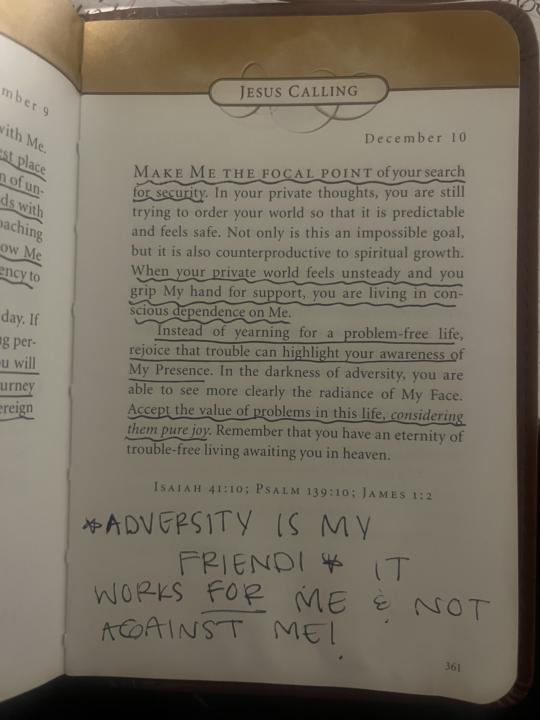 mber 9
with Me.
est place
n of un-
ds with
oaching
ow Me
ency to
day. If
ng per-
u will
urney
ereign
JESUS CALLING
December 10
MAKE ME THE FOCAL POINT of your search
for security. In your private thoughts, you are still
trying to order your world so that it is predictable
and feels safe. Not only is this an impossible goal,
but it is also counterproductive to spiritual growth.
When your private world feels unsteady and you
grip My hand for support, you are living in con-
scious dependence on Me.
Instead of yearning for a problem-free life,
rejoice that trouble can highlight your awareness of
My Presence. In the darkness of adversity, you are
able to see more clearly the radiance of My Face.
Accept the value of problems in this life, considering
them pure joy. Remember that you have an eternity of
trouble-free living awaiting you in heaven.
ISAIAH 41:10; PSALM 139:10; JAMES 1:2
*ADVERSITY IS MY
FRIEND! * IT
WORKS FOR ME & NOT
AGAINST ME!
361